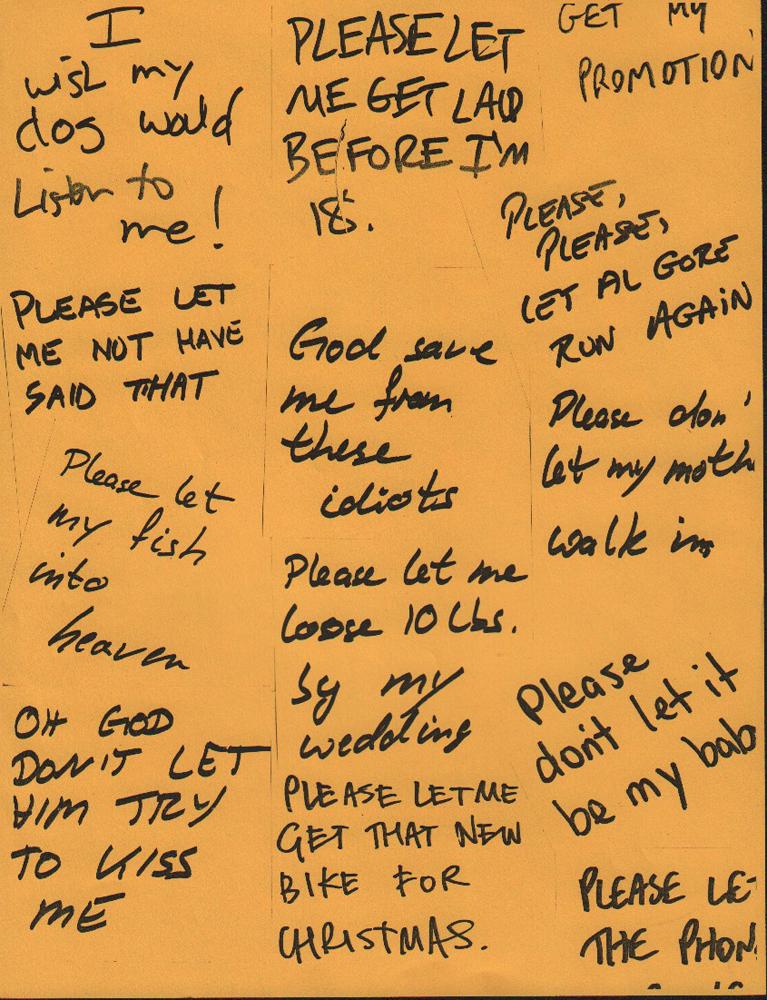 I
wish my
dog would
Listen to
me!
PLEASE LET
ME NOT HAVE
SAID THAT
Please let
my fish
into
heaven
OH GOD
DON'T LET
HIM TRY
TO KISS
ME
PLEASE LET
ME GET LAID
BEFORE I'M
18.
God save
me from
these
idiots
Please let me
loose 10 Lbs.
by my
wedding
PLEASE LET ME
GET THAT NEW
BIKE FOR
CHRISTMAS.
GET MY
PROMOTION
PLEASE,
PLEASE,
LET AL GORE
RUN AGAIN
Please don'
let my moth
walk in
Please
don't let it
be my bab
PLEASE LE
THE PHON